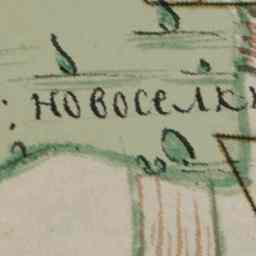 : новоселки